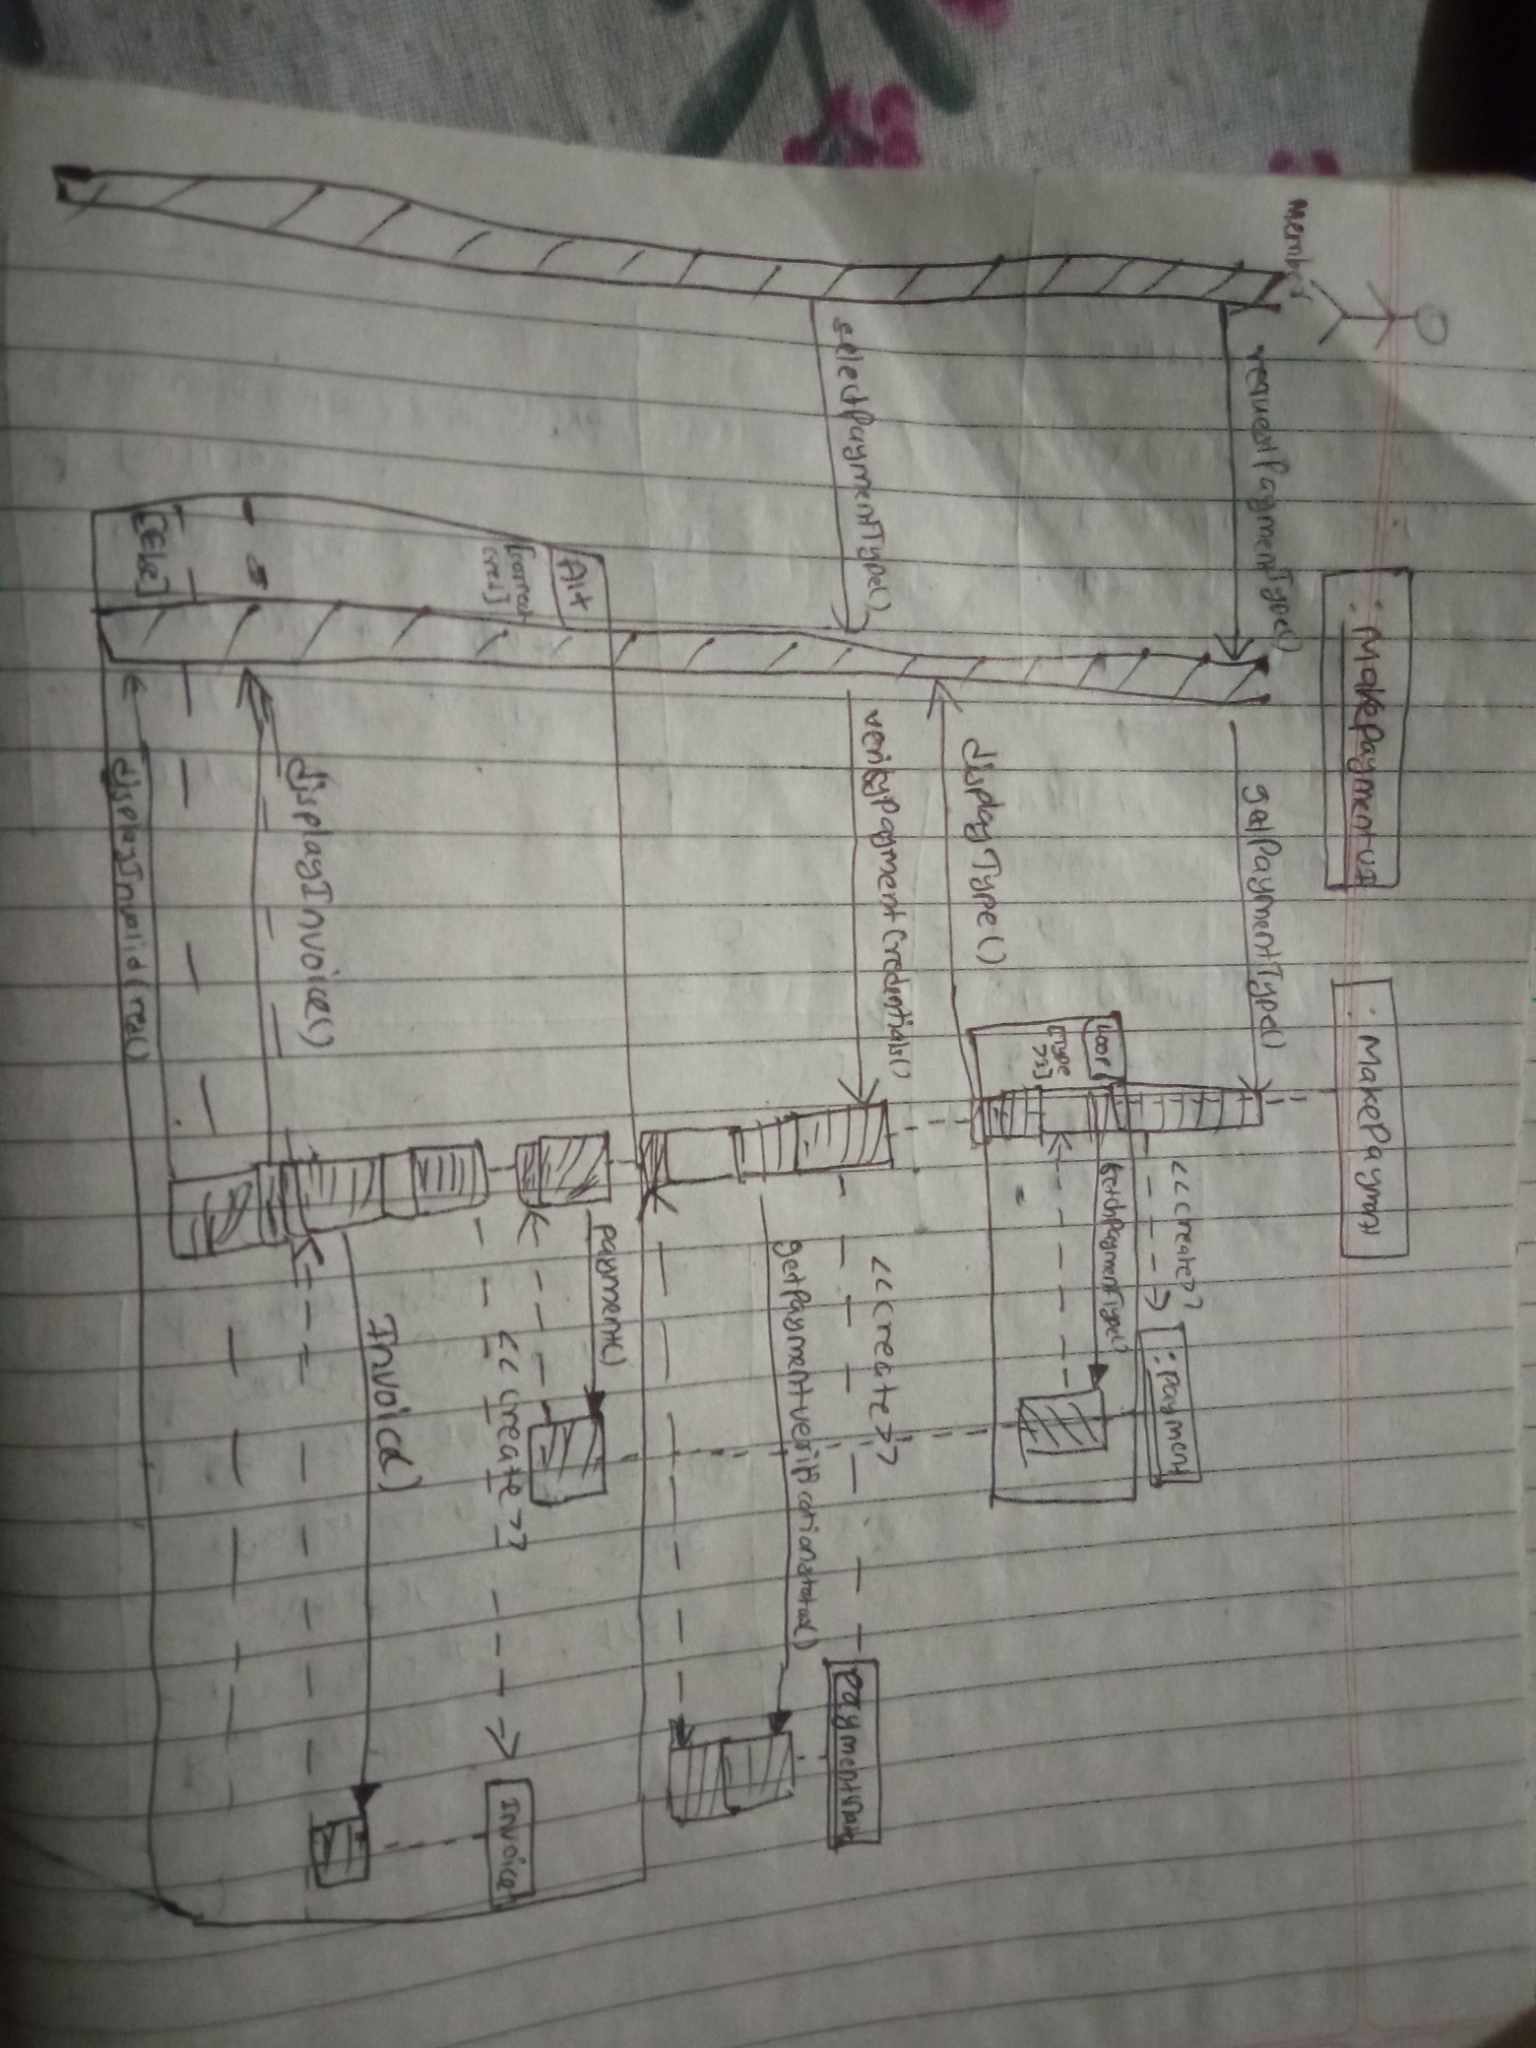 : MakePaymentUI
: MakePayment
Member
requestPaymentType()
getPaymentType()
<<create>>
: payment
Loop
fetchPaymentType()
[Type
displayType()
selectPaymentType()
verifyPaymentCredentials()
<<create>>
getPaymentVerificationstatus()
payment()
Alt
[correct
cred]
<<create>>
Invoice
Invoice()
displayInvoice()
[Else]
displayInvalidCred()